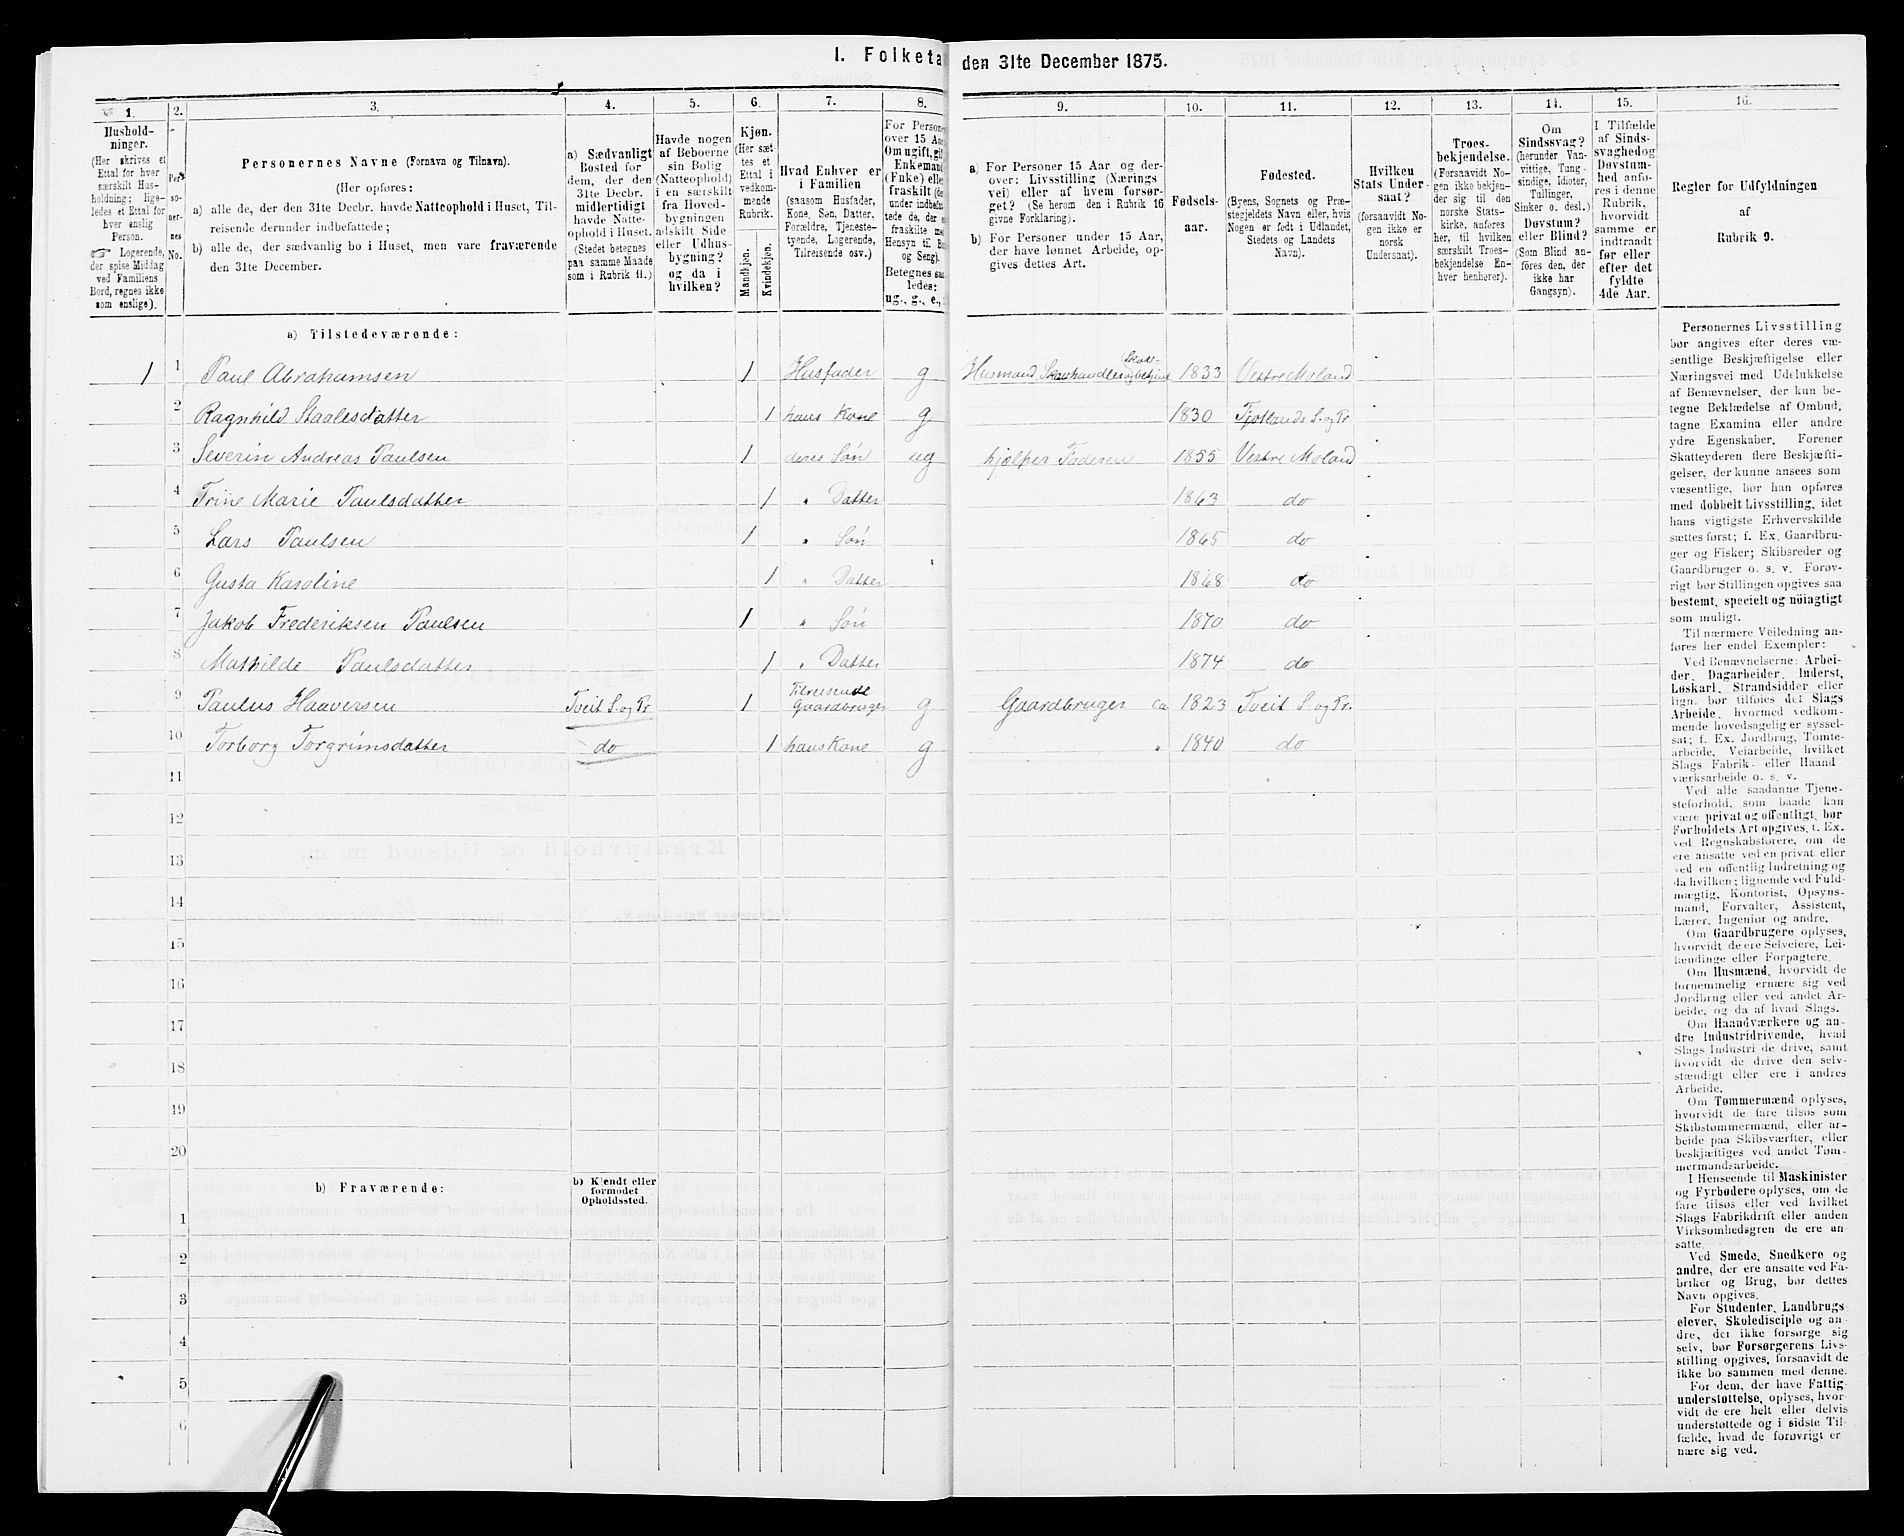 I. Folketa
den 31te December 1875.
1.
Hushold-
ninger.
(Her skrives et
Ettal for hver
særskilt Hus-
holdning; lige-
ledes et Ettal for
hver enslig
Person.
☞ Logerende,
der spise Middag
ved Familiens
Bord, regnes ikke
som enslige).
2.
Per-
so-
ner-
nes
No.
3.
Personernes Navne (Fornavn og Tilnavn).
(Her opføres:
a) alle de, der den 31te Decbr. havde Natteophold i Huset, Til-
reisende derunder indbefattede;
b) alle de, der sædvanlig bo i Huset, men vare fraværende
den 31te December.
4.
a) Sædvanligt
Bosted for
dem, der den
31te Decbr.
midlertidigt
havde Natte-
ophold i Huset.
(Stedet betegnes
paa samme Maade
som i Rubrik 11.)
5.
Havde nogen
af Beboerne
sin Bolig
(Natteophold)
i en særskilt
fra Hoved-
bygningen
adskilt Side-
eller Udhus-
bygning?
og da i
hvilken?
6.
Kjøn.
(Her sæt-
tes et
Ettal i
vedkom-
mende
Rubrik.
Mandkjøn.
Kvindekjøn.
7.
Hvad Enhver er
i Familien
(saasom Husfader,
Kone, Søn, Datter,
Forældre, Tjeneste-
tyende, Logerende,
Tilreisende osv.)
8.
For Persone
over 15 Aar
Om ugift, gif
Enkemand
(Enke) elle
fraskilt
under indbefat-
tede de, der e
fraskilte med
Hensyn til Bo
og Seng).
Betegnes saa
ledes:
ug., g., e.,
9.
a) For Personer 15 Aar og der-
over: Livsstilling (Nærings
vei) eller af hvem forsør-
get? (Se herom den i Rubrik 16
givne Forklaring.)
b) For Personer under 15 Aar,
der have lønnet Arbeide, op-
gives dettes Art.
10.
Fødsels-
aar.
11.
Fødested.
(Byens, Sognets og Præ-
stegjeldets Navn eller, hvis
Nogen er født i Udlandet,
Stedets og Landets
Navn).
12.
Hvilken
Stats Under-
saat?
(forsaavidt No-
gen ikke er
norsk
Undersaat).
13.
Troes-
bekjendelse.
(Forsaavidt No-
gen ikke bekjen-
der sig til den
norske Stats-
kirke, anføres
her, til hvilken
særskilt Troes-
bekjendelse En-
hver henhører).
14.
Om
Sindssvag?
(herunder Van-
vittige, Tung-
sindige, Idioter,
Tullinger,
Sinker o. desl.)
Døvstum?
eller Blind?
(Som Blind an-
føres den, der
ikke har
Gangsyn).
15.
I Tilfælde
af Sinds-
svaghed og
Døvstum-
hed anfø-
res i denne
Rubrik,
hvorvidt
samme er
indtraadt
før eller
efter det
fyldte
4de Aar.
16.
Regler for Udfyldningen
af
Rubrik 9.
a) Tilstedeværende:
1 1 Paul Abrahamsen 1 Husfader g Husmand Skouhandler 1833 Vestre Moland
2 Ragnhild Staalesdatter 1 hans Kone g 1830 Fjotlands S. og Pr
3 Severin Andreas Paulsen 1 deres Søn ug hjælper Faderen 1855 Vestre Moland
4 Trine Marie Paulsdatter 1 " Datter 1863 do
5 Lars Paulsen 1 " Søn 1865 do
6 Gusta Karoline 1 " Datter 1868 do
7 Jakob Frederiksen Paulsen 1 " Søn 1870 do
8 Mathilde Paulsdatter 1 " Datter 1874 do
9 Paulus Haaversen Tveit S. og Pr. 1 Tilreisende Gaardbruger g Gaardbruger ca 1823 Tveit S. og Pr.
10 Torborg Torgrimsdatter do 1 hans Kone g " 1840 do
11
12
13
14
15
16
17
18
19
20
b) Fraværende:
b) Kjendt eller
formodet
Opholdssted.
1
2
3
4
5
6
Personernes Livsstilling
bør angives efter deres væ-
sentlige Beskjæftigelse eller
Næringsvei med Udelukkelse
af Benævnelser, der kun be-
tegne Beklædelse af Ombud,
tagne Examina eller andre
ydre Egenskaber. Forener
Skatteyderen flere Beskjæfti-
gelser, der kunne ansees som
væsentlige, bør han opføres
med dobbelt Livsstilling, idet
hans vigtigste Erhvervskilde
sættes først; f. Ex. Gaardbru-
ger og Fisker; Skibsreder og
Gaardbruger o. s. v. Forøv-
rigt bør Stillingen opgives saa
bestemt, specielt og nöiagtigt
som muligt.
Til nærmere Veiledning an-
føres her endel Exempler:
Ved Benævnelserne: Arbei-
der, Dagarbeider, Inderst,
Løskarl, Strandsidder eller
lign. bør tilføies det Slags
Arbeide, hvormed vedkom-
mende hovedsagelig er syssel-
sat; f. Ex. Jordbrug, Tomte-
arbeide, Veiarbeide, hvilket
Slags Fabrik- eller Haand
værksarbeide o. s. v.
Ved alle saadanne Tjene-
steforhold, som baade kan
være privat og offentligt, bør
Forholdets Art opgives, f. Ex.
ved Regnskabsførere, om de
ere ansatte ved en privat eller
ved en offentlig Indretning og
da hvilken; lignende ved Fuld-
mægtig, Kontorist, Opsyns-
mand, Forvalter, Assistent,
Lærer, Ingeniør og andre.
Om Gaardbrugere oplyses,
hvorvidt de ere Selveiere, Lei-
lændinge eller Forpagtere.
Om Husmænd, hvorvidt de
fornemmelig ernære sig ved
Jordbrug eller ved andet Ar-
beide, og da af hvad Slags.
Om Haandværkere og an-
dre Industridrivende, hvad
Slags Industri de drive, samt
hvorvidt de drive den selv-
stændigt eller ere i andres
Arbeide.
Om Tømmermænd oplyses,
hvorvidt de fare tilsøs som
Skibstømmermænd, eller ar-
beide paa Skibsværfter, eller
beskjæftiges ved andet Tøm-
mermandsarbeide.
I Henseende til Maskinister
og Fyrbødere oplyses, om de
fare tilsøs eller ved hvilket
Slags Fabrikdrift eller anden
Virksomhedsgren de ere an-
satte.
Ved Smede, Snedkere og
andre, der ere ansatte ved Fa-
briker og Brug, bør dettes
Navn opgives.
For Studenter, Landbrugs
elever, Skoledisciple og an-
dre, der ikke forsørge sig
selv, bør Forsørgerens Livs-
stilling opgives, forsaavidt de
ikke bo sammen med denne.
For dem, der have Fattig
understøttelse, oplyses, hvor-
vidt de ere helt eller delvis
understøttede og i sidste Til-
fælde, hvad de forøvrigt er
nære sig ved.